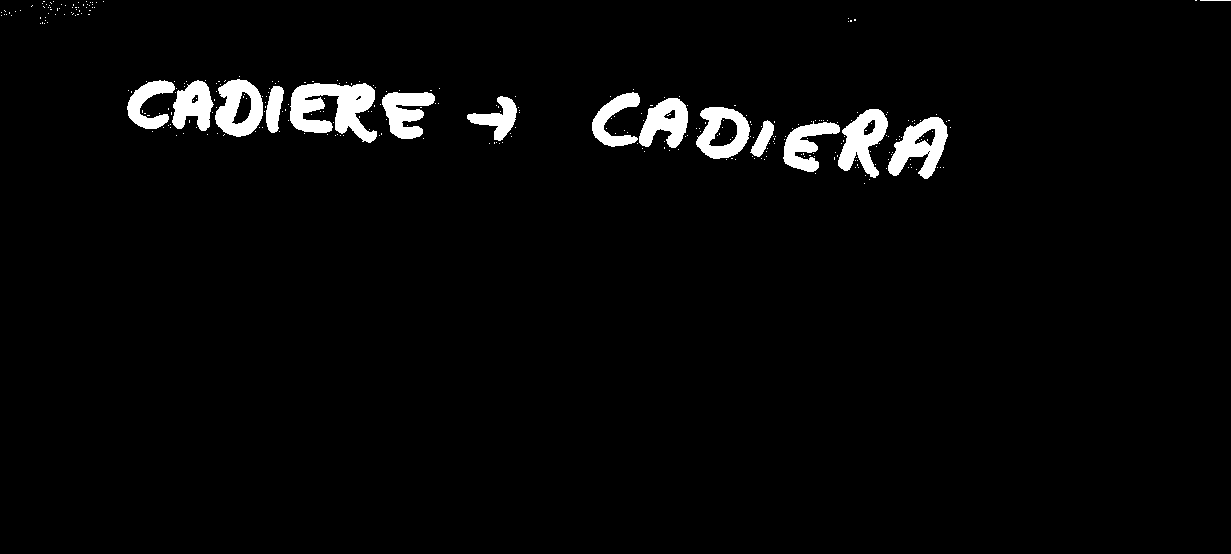 CADIERE → CADIERA